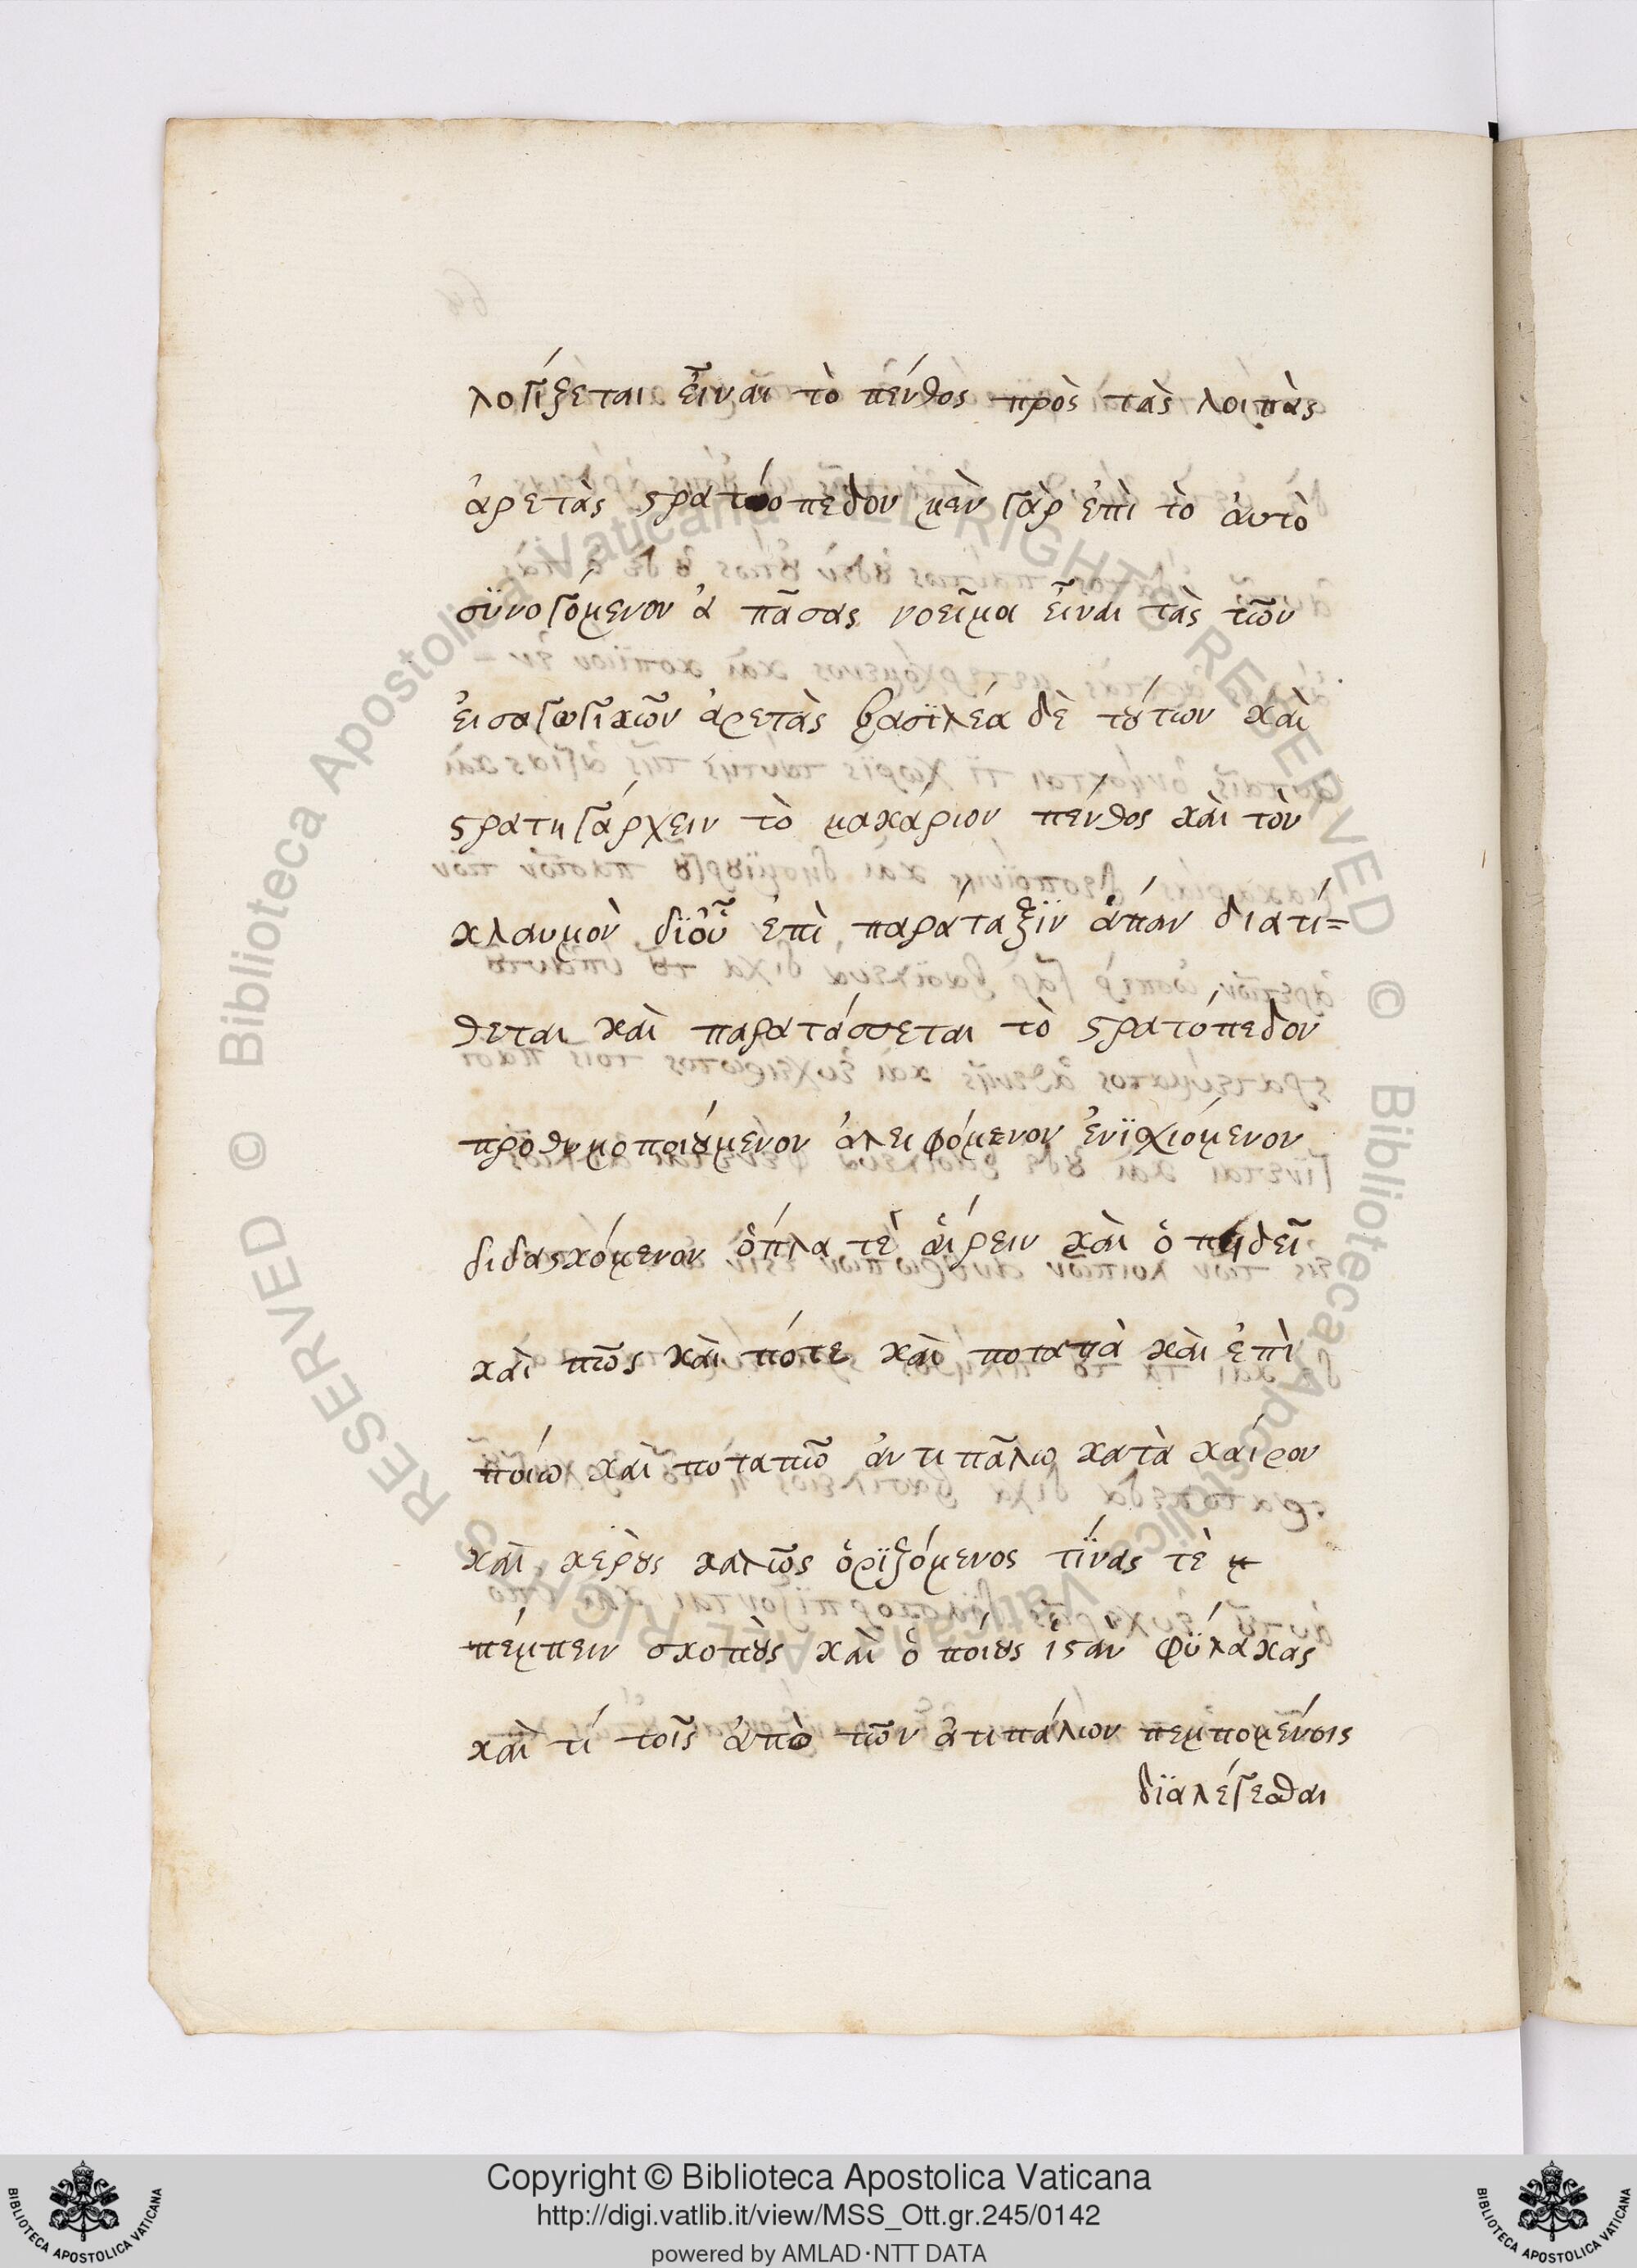 λογίζεται εἶναι τὸ πένθος πρὸς τὰς λοιπὰς
ἀρετὰς στρατόπεδον μὲν γὰρ ἐπὶ τὸ ἀυτὸ
σϋναγόμενον ἁ πᾶσας νοεῖμα εἶναι τὰς τῶν
ἐισαγωγικῶν ἀρετὰς βασϊλέα δὲ τούτων καὶ
στρατηγάρχειν τὸ μακάριον πένθος καὶ τὸν
κλαυμὸν δϊοὗ ἐπὶ παράταξϊν ἅπαν διατί=
θεται καὶ παρατάσσεται τὸ στρατόπεδον
προθυμοποιούμενον ἀλειφόμενον ἐνϊοχιόμενον
διδασκόμενον ὅπλα τὲ ἀίρειν καὶ ὁ δεῖ
καὶ πῶς καὶ πότε καὶ ποταπὰ καὶ ἐπὶ
ποίω καὶ ποταπῶ ἀντιπᾶλω κατὰ καίρον
καὶ κερὸυς καλῶς ὁρϊζόμενος τίνας τὲ
πέμπειν σκοποὺς καὶ ὁ πόιους ἱσταν φϋλάκας
καὶ τί τοῖς ἀπὸ τῶν ἀτιπάλων πεμπομένοις
δϊαλέγεσθαι
Copyright © Biblioteca Apostolica Vaticana
http://digi.vatlib.it/view/MSS_Ott.gr.245/0142
powered by AMLAD·NTT DATA
BIBLIOTECA APOSTOLICA VATICANA
BIBLIOTECA APOSTOLICA VATICANA